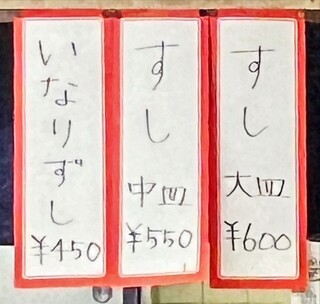 すし大皿
¥600
すし中皿
¥550
いなりずし
¥450